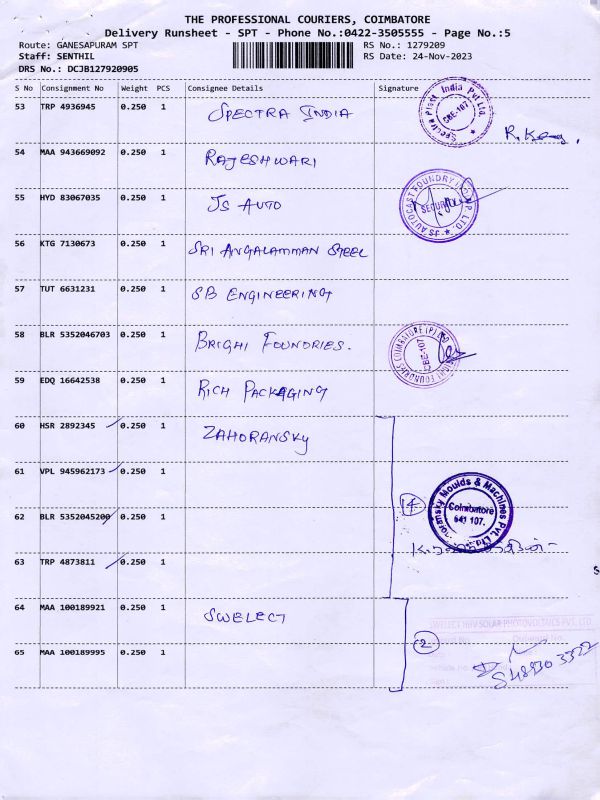 THE PROFESSIONAL COURIERS, COIMBATORE
Delivery Runsheet - SPT - Phone No.:0422-3505555 - Page No.:5
Route: GANESAPURAM SPT RS No.: 1279209
Staff: SENTHIL RS Date: 24-Nov-2023
DRS No.: DCJB127920905
S No Consignment No Weight PCS Consignee Details Signature
53 TRP 4936945 0.250 1 SPECTRA INDIA
Spectra Plast India Pvt Ltd. CBE-107
54 MAA 943669092 0.250 1 RAJESHWARI
55 HYD 83067035 0.250 1 JS AUTO
JS AUTOCAST FOUNDRY P. LTD. SECURITY
56 KTG 7130673 0.250 1 SRI ANGALAMMAN STEEL
57 TUT 6631231 0.250 1 SB ENGINEERING
58 BLR 5352046703 0.250 1 BRIGHI FOUNDRIES.
FOUNDRIES COIMBATORE (P) CBE-107
59 EDQ 16642538 0.250 1 RICH PACKAGING
60 HSR 2892345 0.250 1 ZAHORANSKY
61 VPL 945962173 0.250 1
62 BLR 5352045200 0.250 1
4
Moulds & Machines Pvt Coimbatore 641 107.
63 TRP 4873811 0.250 1
64 MAA 100189921 0.250 1 SWELECT
SWELECT HHV SOLAR PHOTOVOLTAICS PVT. LTD
65 MAA 100189995 0.250 1
2